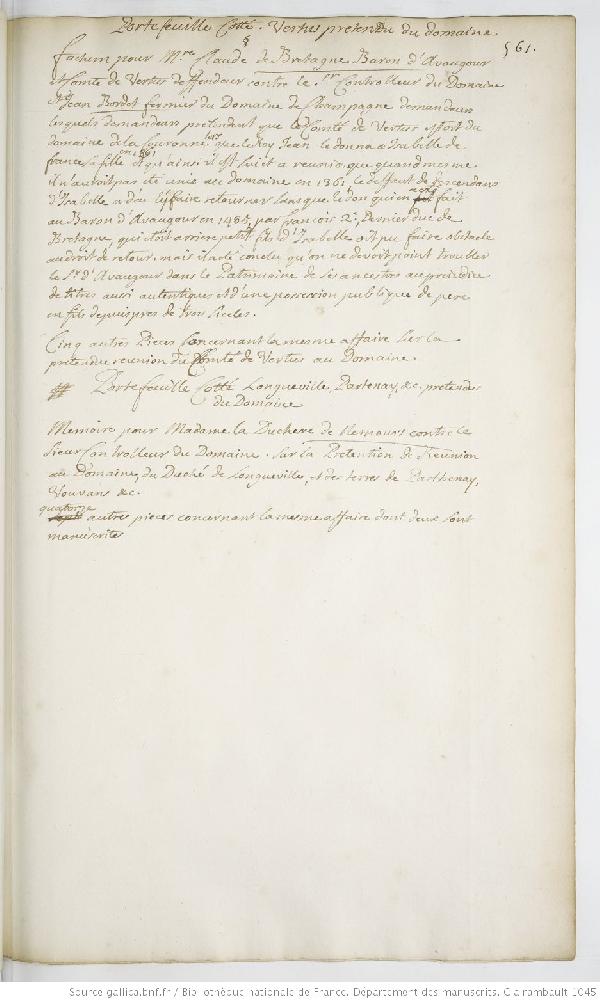 Portefeuille Cotté. Vertus pretendu du domaine.
561.
factum pour Mre. Claude de Bretagne Baron d'Avaugour
et Comte de Vertus deffendeur contre le Sr. Controlleur du Domaine
et Jean Bordot fermier du Domaine de Champagne demandeurs
lesquels demandeurs pretendant que le Comté de Vertus estoit du
domaine de la Couronne lorsque le Roy Jean le donna a Isabelle de
france sa fille en 1361 et qu'ainsi il est sujet a reunion, que quand mesme
il n'auroit pas eté unie au domaine en 1361 le deffaut de descendans
d'Isabelle a dû l'y faire retourner sans que le don qui en a eté fait
au Baron d'Avaugour en 1485, par francois 2e. Dernier duc de
Bretagne, qui estoit arriere petit fils d'Isabelle ait pu faire obstacle
au droit de retour. mais il a eté conclu qu'on ne devoit point troubler
le Sr. d'Avaugour dans le Patrimoine de ses ancestres au prejudice
de titres aussi autentiques et d'une possession publique de pere
en fils depuis pres de trois siecles.
Cinq autres Pieces concernant la mesme affaire sur la
pretendue reunion du Comté de Vertus au Domaine.
Portefeuille Cotté Longueville, Partenay, &c. pretendus
du Domaine
Memoire pour Madame la Duchesse de Nemours contre le
sieur Controlleur du Domaine. sur la Pretention de Reunion
au Domaine, du Duché de Longueville, et des terres de Parthenay,
Vouvans &c.
quatorze autres pieces concernant la mesme affaire dont deux sont
manuscrites
Source gallica.bnf.fr / Bibliothèque nationale de France. Département des manuscrits. Clairambault 1045